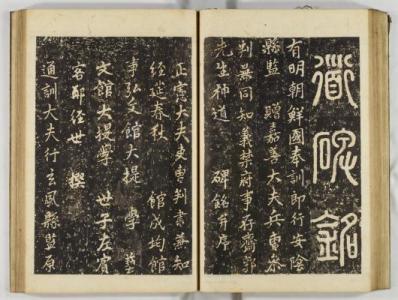 道碑銘
有明朝鮮國奉訓郎行安陰
縣監 贈嘉善大夫兵曹參
判兼同知義禁府事存齋郭
先生神道 碑銘幷序
正憲大夫吏曹判書兼知
經筵春秋 館成均館
事弘文館大提學 藝
文館大提學 世子左賓
客鄭經世 撰
通訓大夫行玄風縣監原